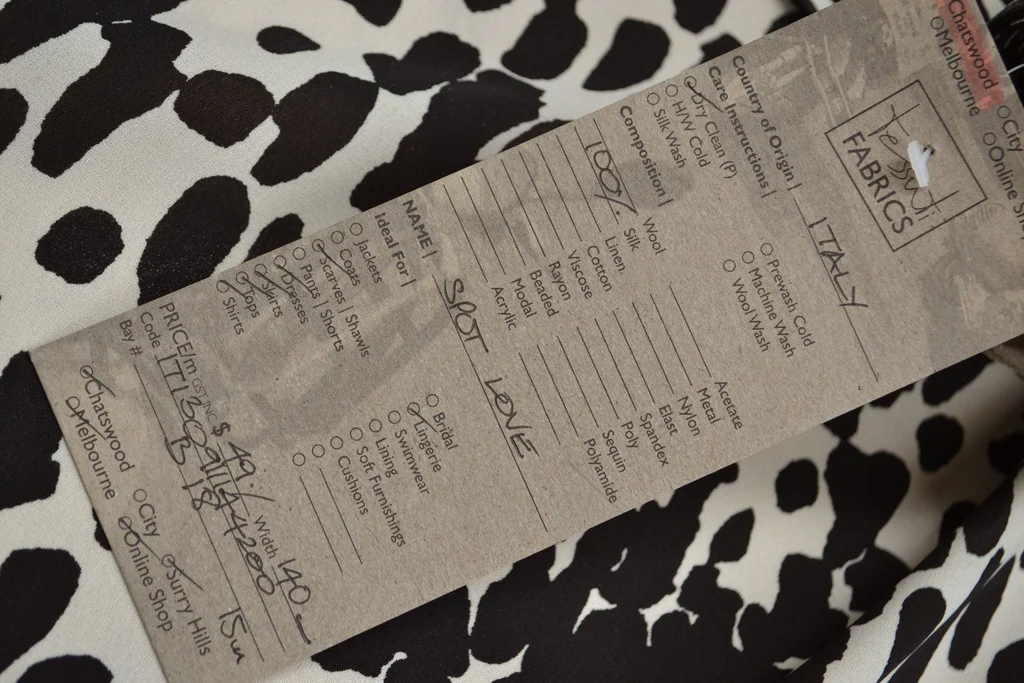 Chatswood
City
Melbourne
Online
Tessuti
FABRICS
Country of Origin | ITALY
Care Instructions |
Dry Clean (P)
Prewash Cold
H/W Cold
Machine Wash
Silk Wash
Wool Wash
Composition |
Wool
Acetate
100% Silk
Metal
Linen
Nylon
Cotton
Elast
Viscose
Spandex
Rayon
Poly
Beaded
Sequin
Modal
Polyamide
Acrylic
NAME | SPOT LOVE
Ideal For |
Jackets
Bridal
Coats
Lingerie
Scarves | Shawls
Swimwear
Pants | Shorts
Lining
Dresses
Soft Furnishings
Skirts
Cushions
Tops
Shirts
PRICE/m GST INC $ 49./ Width 140
Code
Bay #
15m
Chatswood
City
Surry Hills
Melbourne
Online Shop